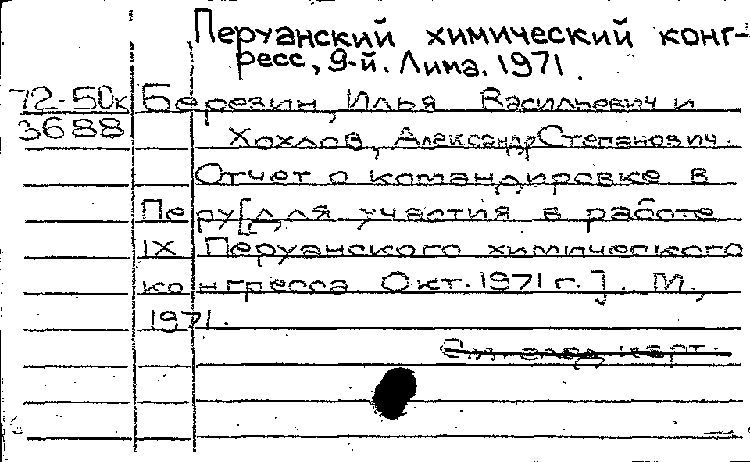 Перуанский химический конг-
ресс, 9-й. Лима. 1971.
72-50к Березин, Илья Васильевич и
3688 Хохлов, Александр Степанович.
Отчет о командировке в
Перу [для участия в работе
IX Перуанского химического
конгресса Окт. 1971 г.]. М.,
1971.